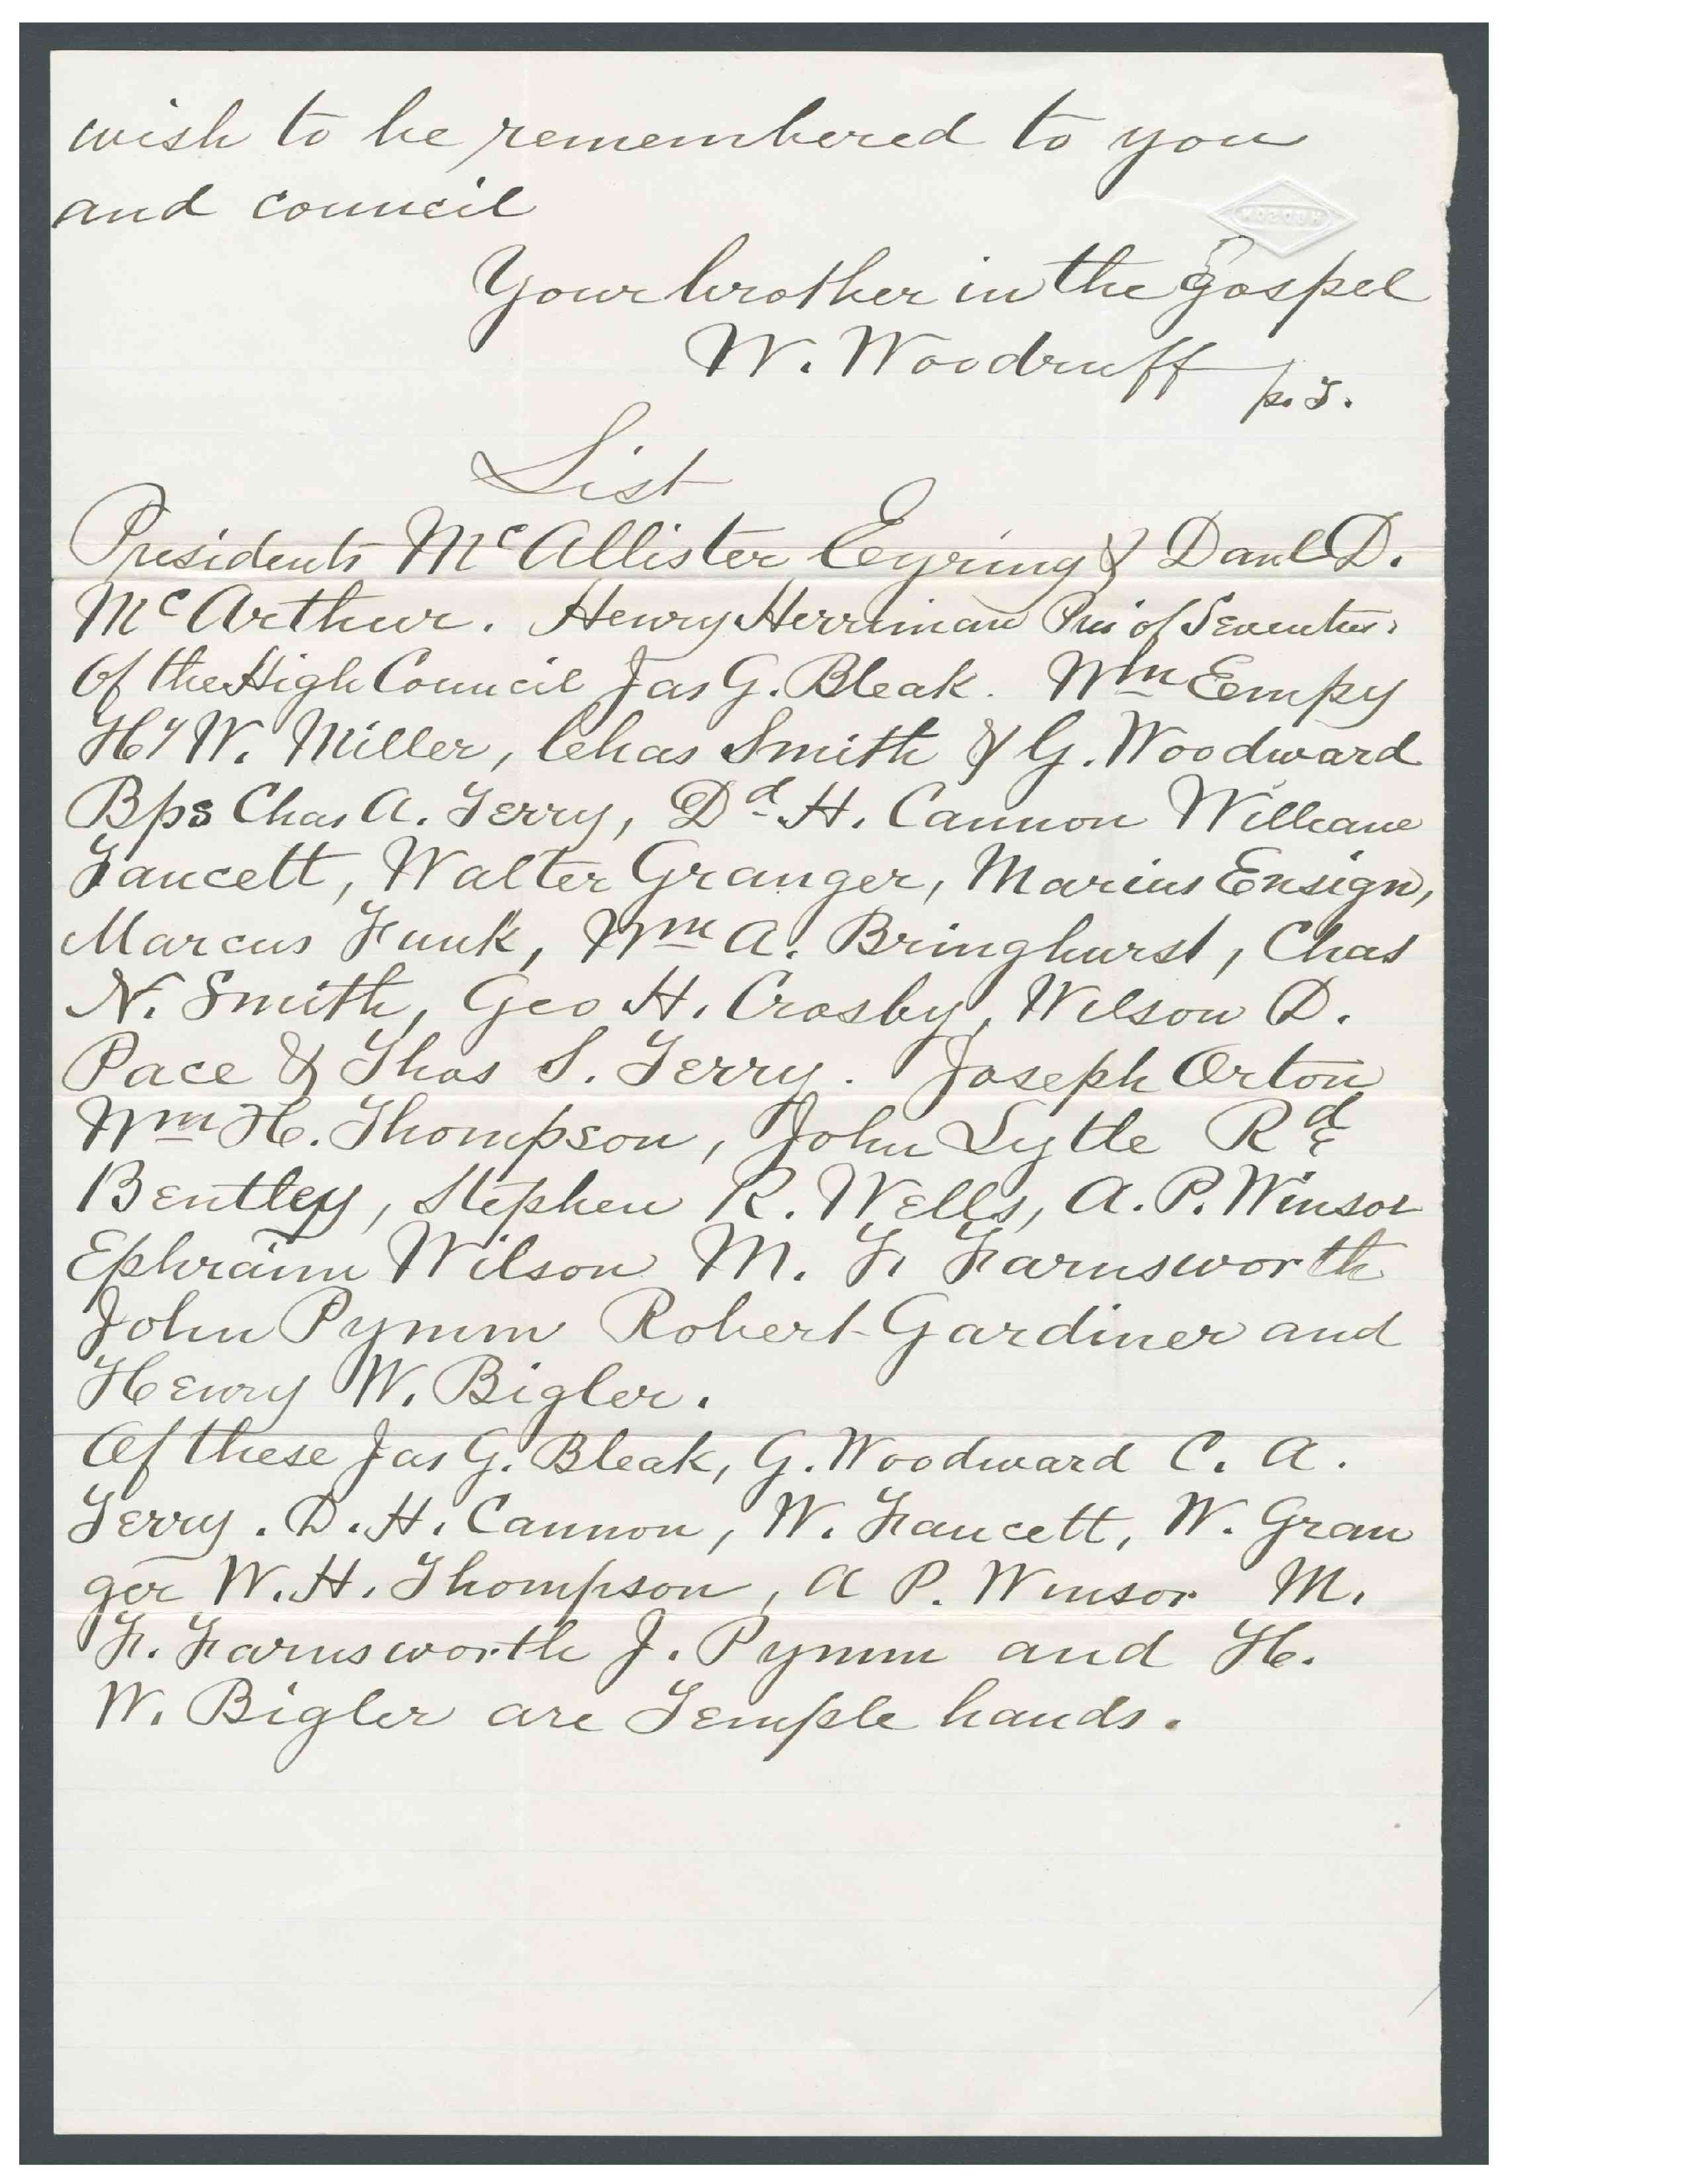 wish to be remembered to you
and council
HUDSON
Your brother in the gospel
W. Woodruff
List
Presidents McAllister Eyring & Danl D.
McArthur. Henry Herriman Pres of Seventies.
Of the High Council Jas G. Bleak. Wm Eempy
Hy W. Miller, Chas Smith & G. Woodward
Bps Chas A. Terry, Dd H. Cannon William
Faucett, Walter Granger, Marius Ensign,
Marcus Funk, Wm A. Bringhurst, Chas
N. Smith, Geo H. Crosby, Wilson D.
Pace & Thos S. Terry. Joseph Orton
Wm H. Thompson, John Lytle Rd
Bentley, Stephen R. Wells, A. P. Winsor
Ephraim Wilson M. F. Farnsworth
John Pymm Robert Gardiner and
Henry W. Bigler.
Of these Jas G. Bleak, G. Woodward C. A.
Terry. D. H. Cannon, W. Faucett, W. Gran
ger W. H. Thompson, A P. Winsor M.
F. Farnsworth J. Pymm and H.
W. Bigler are Temple hands.